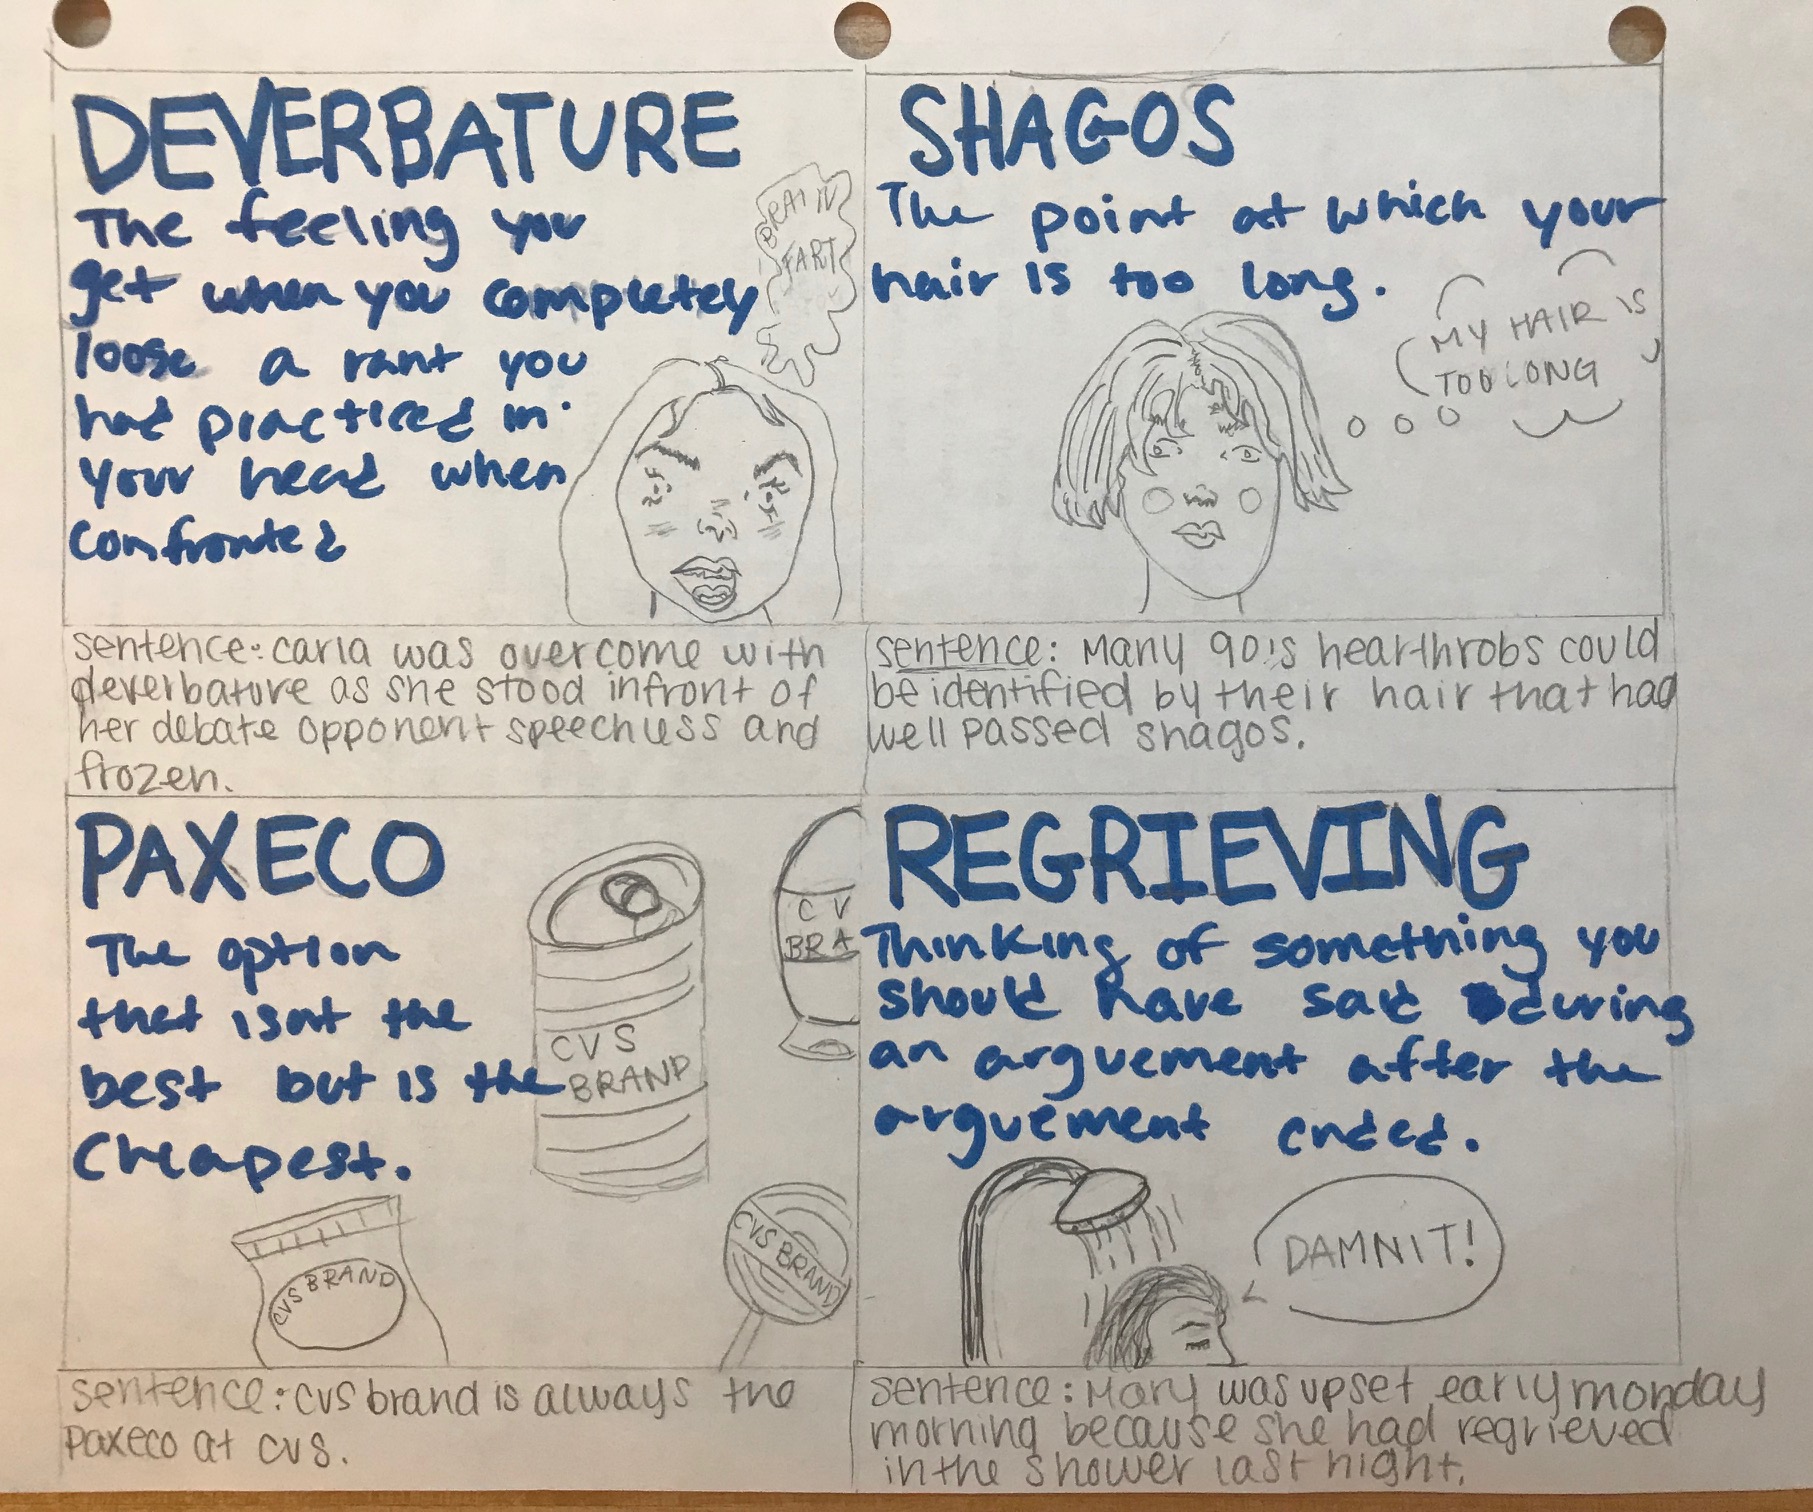 DEVERBATURE
The feeling you
get when you completely
loose a rant you
had practiced in
your head when
confronted
BRAIN
FART
sentence: carla was overcome with
deverbature as she stood infront of
her debate opponent speechless and
frozen.
SHAGOS
The point at which your
hair is too long.
MY HAIR IS
TOO LONG
sentence: Many 90's hearthrobs could
be identified by their hair that had
well passed shagos.
PAXECO
The option
that isnt the
best but is the
cheapest.
CVS
BRAND
C V
BRA
CVS BRAND
CVS BRAND
sentence: cvs brand is always the
paxeco at cvs.
REGRIEVING
Thinking of something you
should have said during
an arguement after the
arguement ended.
DAMNIT!
sentence: Mary was upset early monday
morning because she had regrieved
in the shower last night.